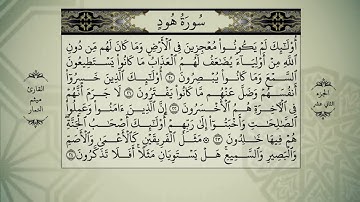 سُورَةُ هُودٍ
أُو۟لَٰٓئِكَ لَمْ يَكُونُوا۟ مُعْجِزِينَ فِى ٱلْأَرْضِ وَمَا كَانَ لَهُم مِّن دُونِ
ٱللَّهِ مِنْ أَوْلِيَآءَ يُضَٰعَفُ لَهُمُ ٱلْعَذَابُ مَا كَانُوا۟ يَسْتَطِيعُونَ
ٱلسَّمْعَ وَمَا كَانُوا۟ يُبْصِرُونَ ٢٠ أُو۟لَٰٓئِكَ ٱلَّذِينَ خَسِرُوٓا۟
أَنفُسَهُمْ وَضَلَّ عَنْهُم مَّا كَانُوا۟ يَفْتَرُونَ ٢١ لَا جَرَمَ أَنَّهُمْ
فِى ٱلْءَاخِرَةِ هُمُ ٱلْأَخْسَرُونَ ٢٢ إِنَّ ٱلَّذِينَ ءَامَنُوا۟ وَعَمِلُوا۟
ٱلصَّٰلِحَٰتِ وَأَخْبَتُوٓا۟ إِلَىٰ رَبِّهِمْ أُو۟لَٰٓئِكَ أَصْحَٰبُ ٱلْجَنَّةِ
هُمْ فِيهَا خَٰلِدُونَ ٢٣ مَثَلُ ٱلْفَرِيقَيْنِ كَٱلْأَعْمَىٰ وَٱلْأَصَمِّ
وَٱلْبَصِيرِ وَٱلسَّمِيعِ هَلْ يَسْتَوِيَانِ مَثَلًا أَفَلَا تَذَكَّرُونَ ٢٤
الجزء
الثاني عشر
القارئ
ميثم
التمار